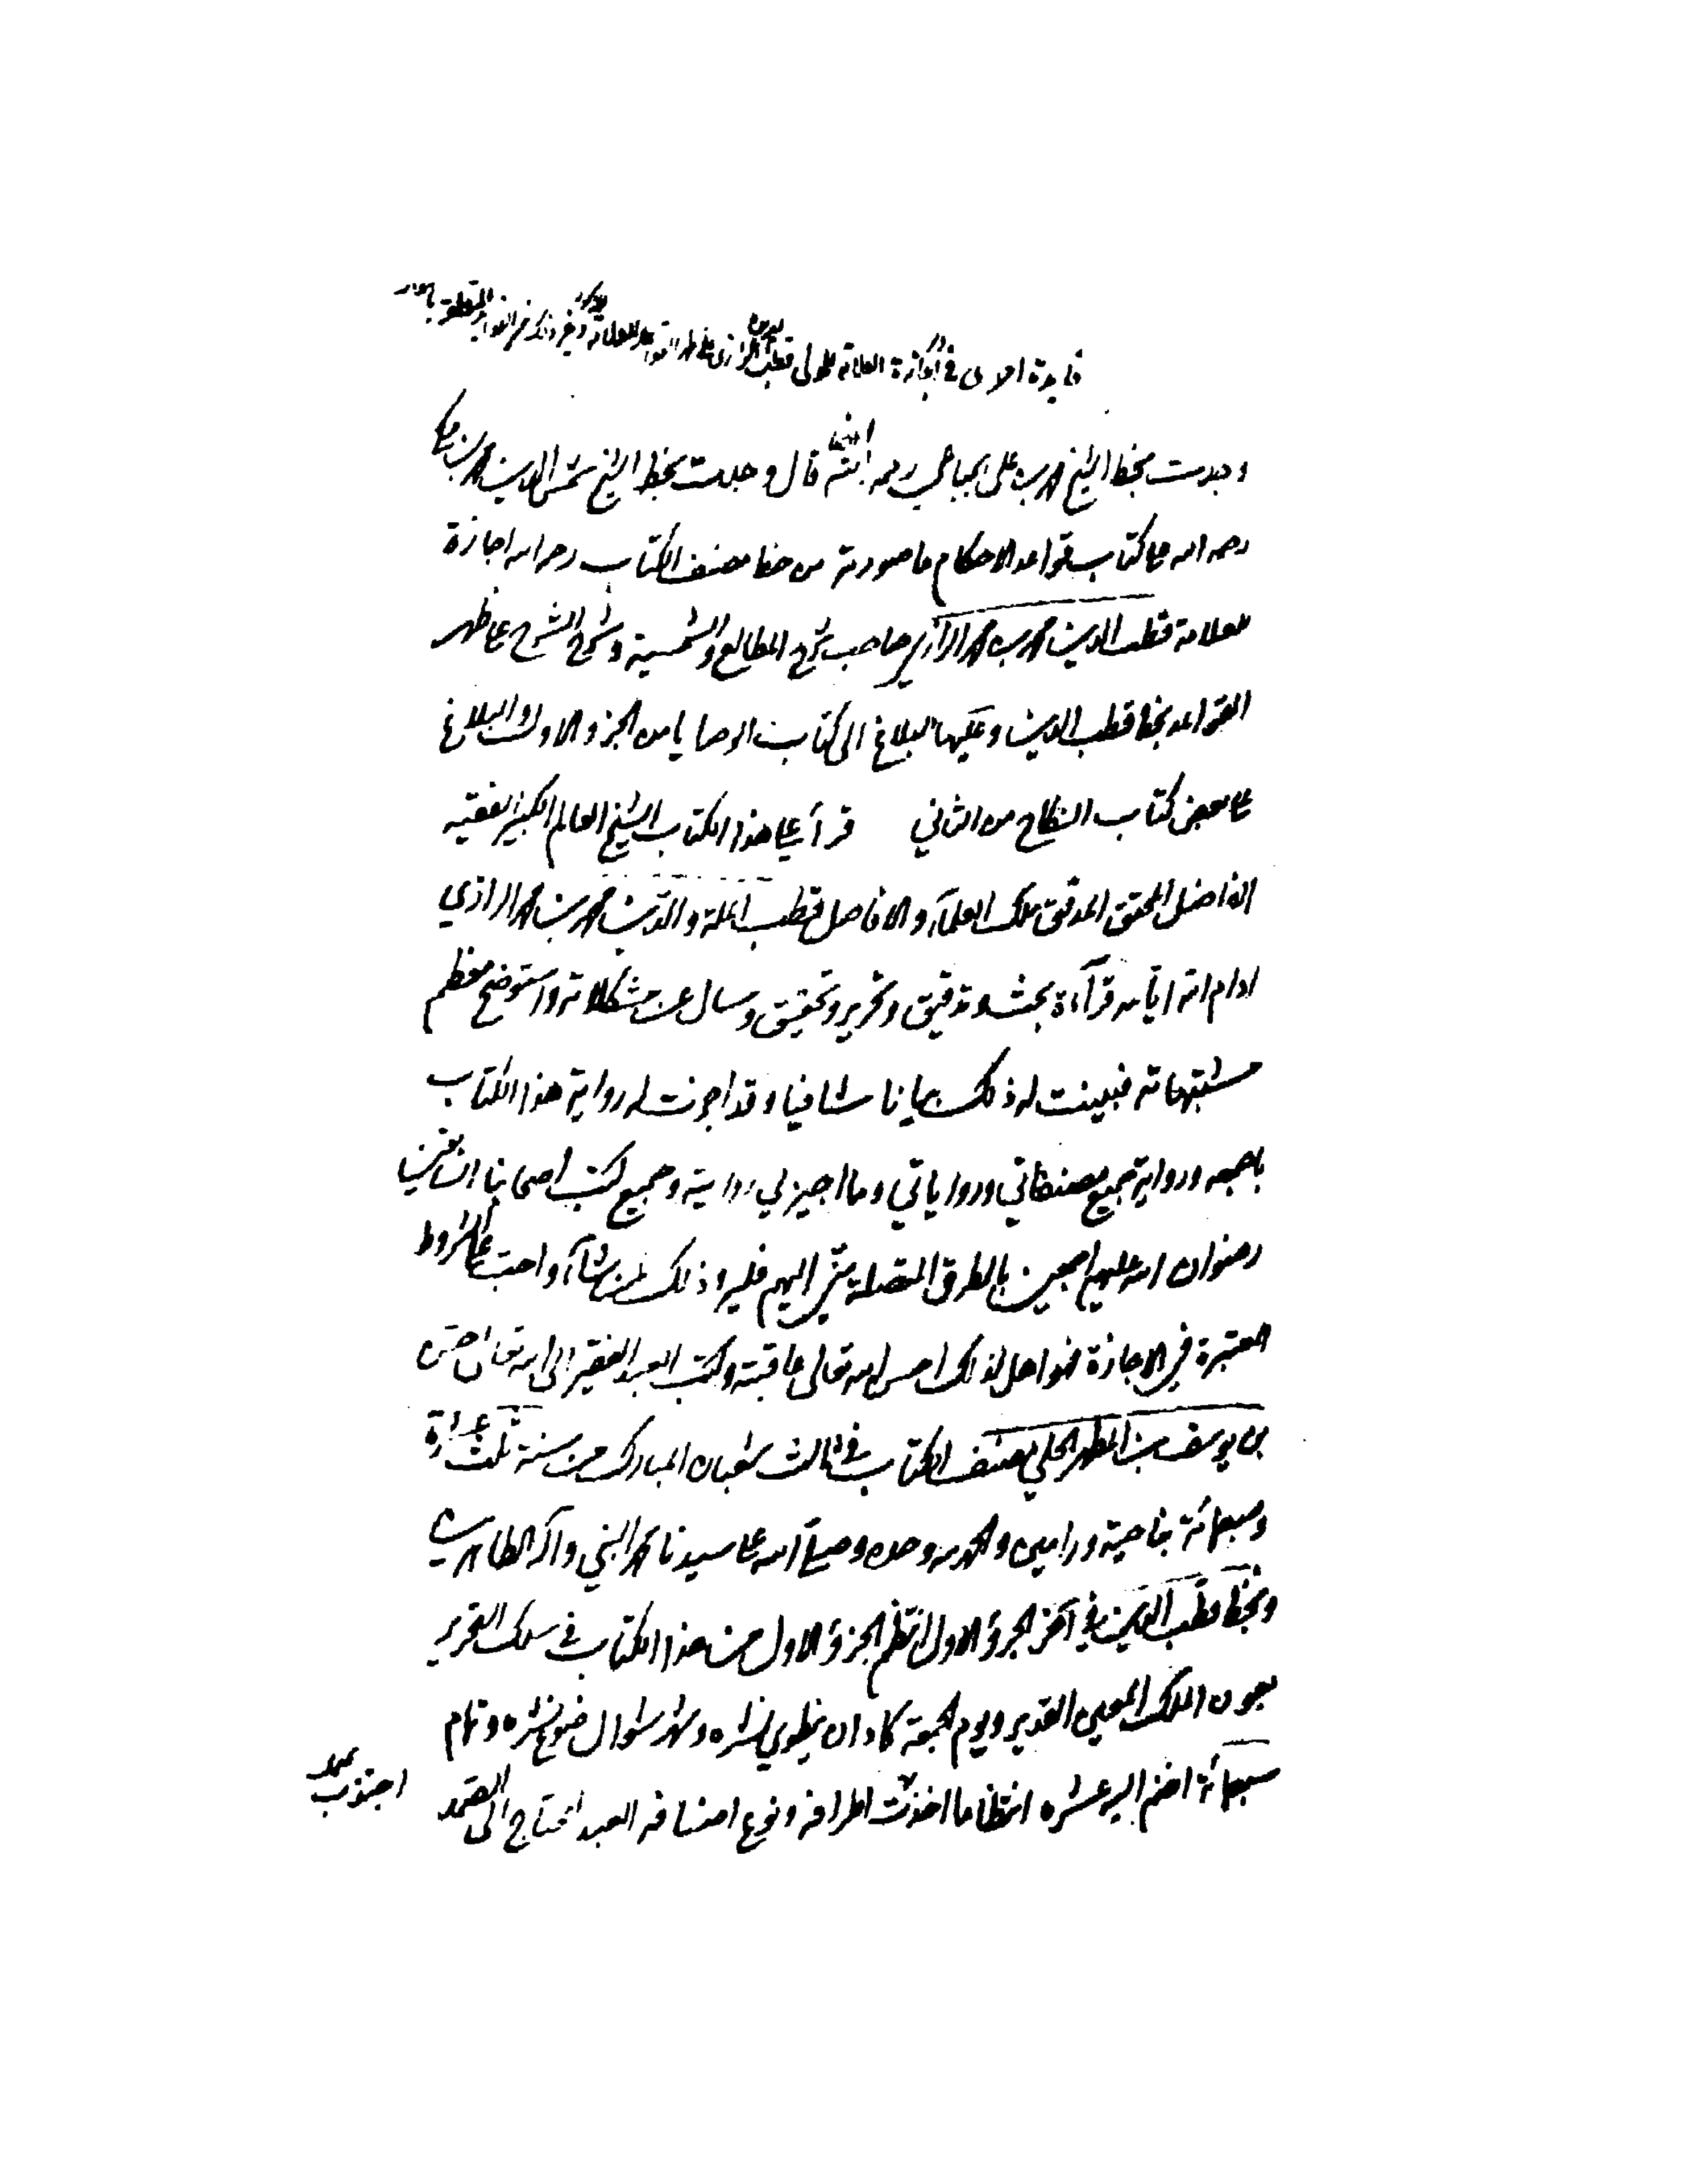 فايدة اخرى في ذكر اجازة العلامة للمولى قطب الدين الرازي على ظهر القواعد للعلامة المذكور وغير ذلك من الفوايد المتعلقة
وجدت بخط الشيخ محمد بن علي الجباعي رحمه الله ايضا قال وجدت بخط الشيخ شمس الدين محمد بن مكي
رحمه الله على كتاب قواعد الاحكام ما صورته من خط مصنف الكتاب رحمه الله اجازة
للعلامة قطب الدين محمد بن محمد الرازي صاحب شرح المطالع والشمسية وشرح الشرح على ظهر
القواعد بخط قطب الدين وعليها البلاغ الى كتاب الوصايا من الجزو الاول والبلاغ
على بعض كتاب النكاح من الثاني قرأ علي هذا الكتاب الشيخ العالم الكبير الفقيه
الفاضل المحقق المدقق ملك العلمآء والافاضل قطب الملة والدين محمد بن محمد الرازي
ادام الله ايامه قرآءة بحث وتدقيق وتحرير وتحقيق وسال عن مشكلاته واستوضح معظم
مشتبهاته فبينت له ذلك بيانا شافيا وقد اجزت له رواية هذا الكتاب
باجمعه ورواية جميع مصنفاتي ورواياتي وما اجيز لي روايته وجميع كتب اصحابنا السابقين
رضوان الله عليهم اجمعين بالطرق المتصلة مني اليهم فليرو ذلك لمن شآء واحب على الشروط
المعتبرة في الاجازة فهو اهل لذلك احسن الله تعالى عاقبته وكتب العبد الفقير الى الله تعالى حسن
بن يوسف بن المطهر الحلي مصنف الكتاب في ثالث شعبان المبارك من سنة ثلث عشرة
وسبعمائة بناحية ورامين والحمد لله وحده وصلى الله على سيدنا محمد النبي وآله الطاهرين
وبخط قطب الدين في آخر الجزؤ الاول انتظم الجزؤ الاول من هذا الكتاب في سلك التحرير
بعون الملك المعين القدير ويوم الجمعة كاد ان ينطوي نشره وشهر شوال ضوع نشره وتمام
سبعمائة اختم اليه عشره انتظاما اخذت اطرافه ونوع اصنافه العبد المحتاج الى الصمد